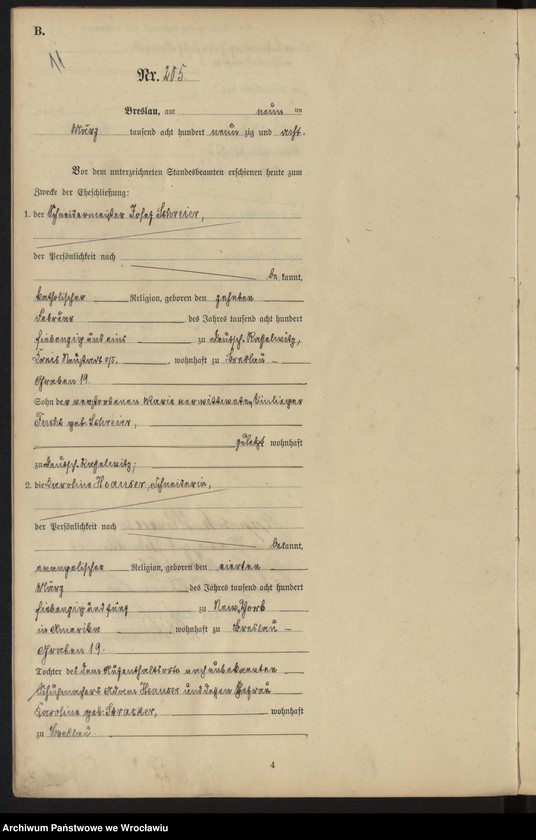 B.
11
Nr. 205.
Breslau, am neun ten
März tausend acht hundert neun zig und acht.
Vor dem unterzeichneten Standesbeamten erschienen heute zum
Zwecke der Eheschließung:
1. der Schneidermeister Josef Schreier,
der Persönlichkeit nach
be kannt,
katholischer Religion, geboren den zehnten
Februar des Jahres tausend acht hundert
siebenzig und eins zu Deutsch Rasselwitz,
Kreis Neustadt O/S. , wohnhaft zu Breslau –
Graben 19.
Sohn der verstorbenen Marie verwittweten Einlieger
Fuchs geb. Schreier,
zuletzt wohnhaft
zu Deutsch Rasselwitz;
2. die Karoline Heauser, Schneiderin,
der Persönlichkeit nach
be kannt,
evangelischer Religion, geboren den vierten
März des Jahres tausend acht hundert
siebenzig und fünf zu New-York
in Amerika , wohnhaft zu Breslau –
Graben 19.
Tochter des dem Aufenthaltsorte nach unbekannten
Schuhmachers Adam Heauser und dessen Ehefrau
Karoline geb. wohnhaft
zu Breslau
4
Archiwum Państwowe we Wrocławiu